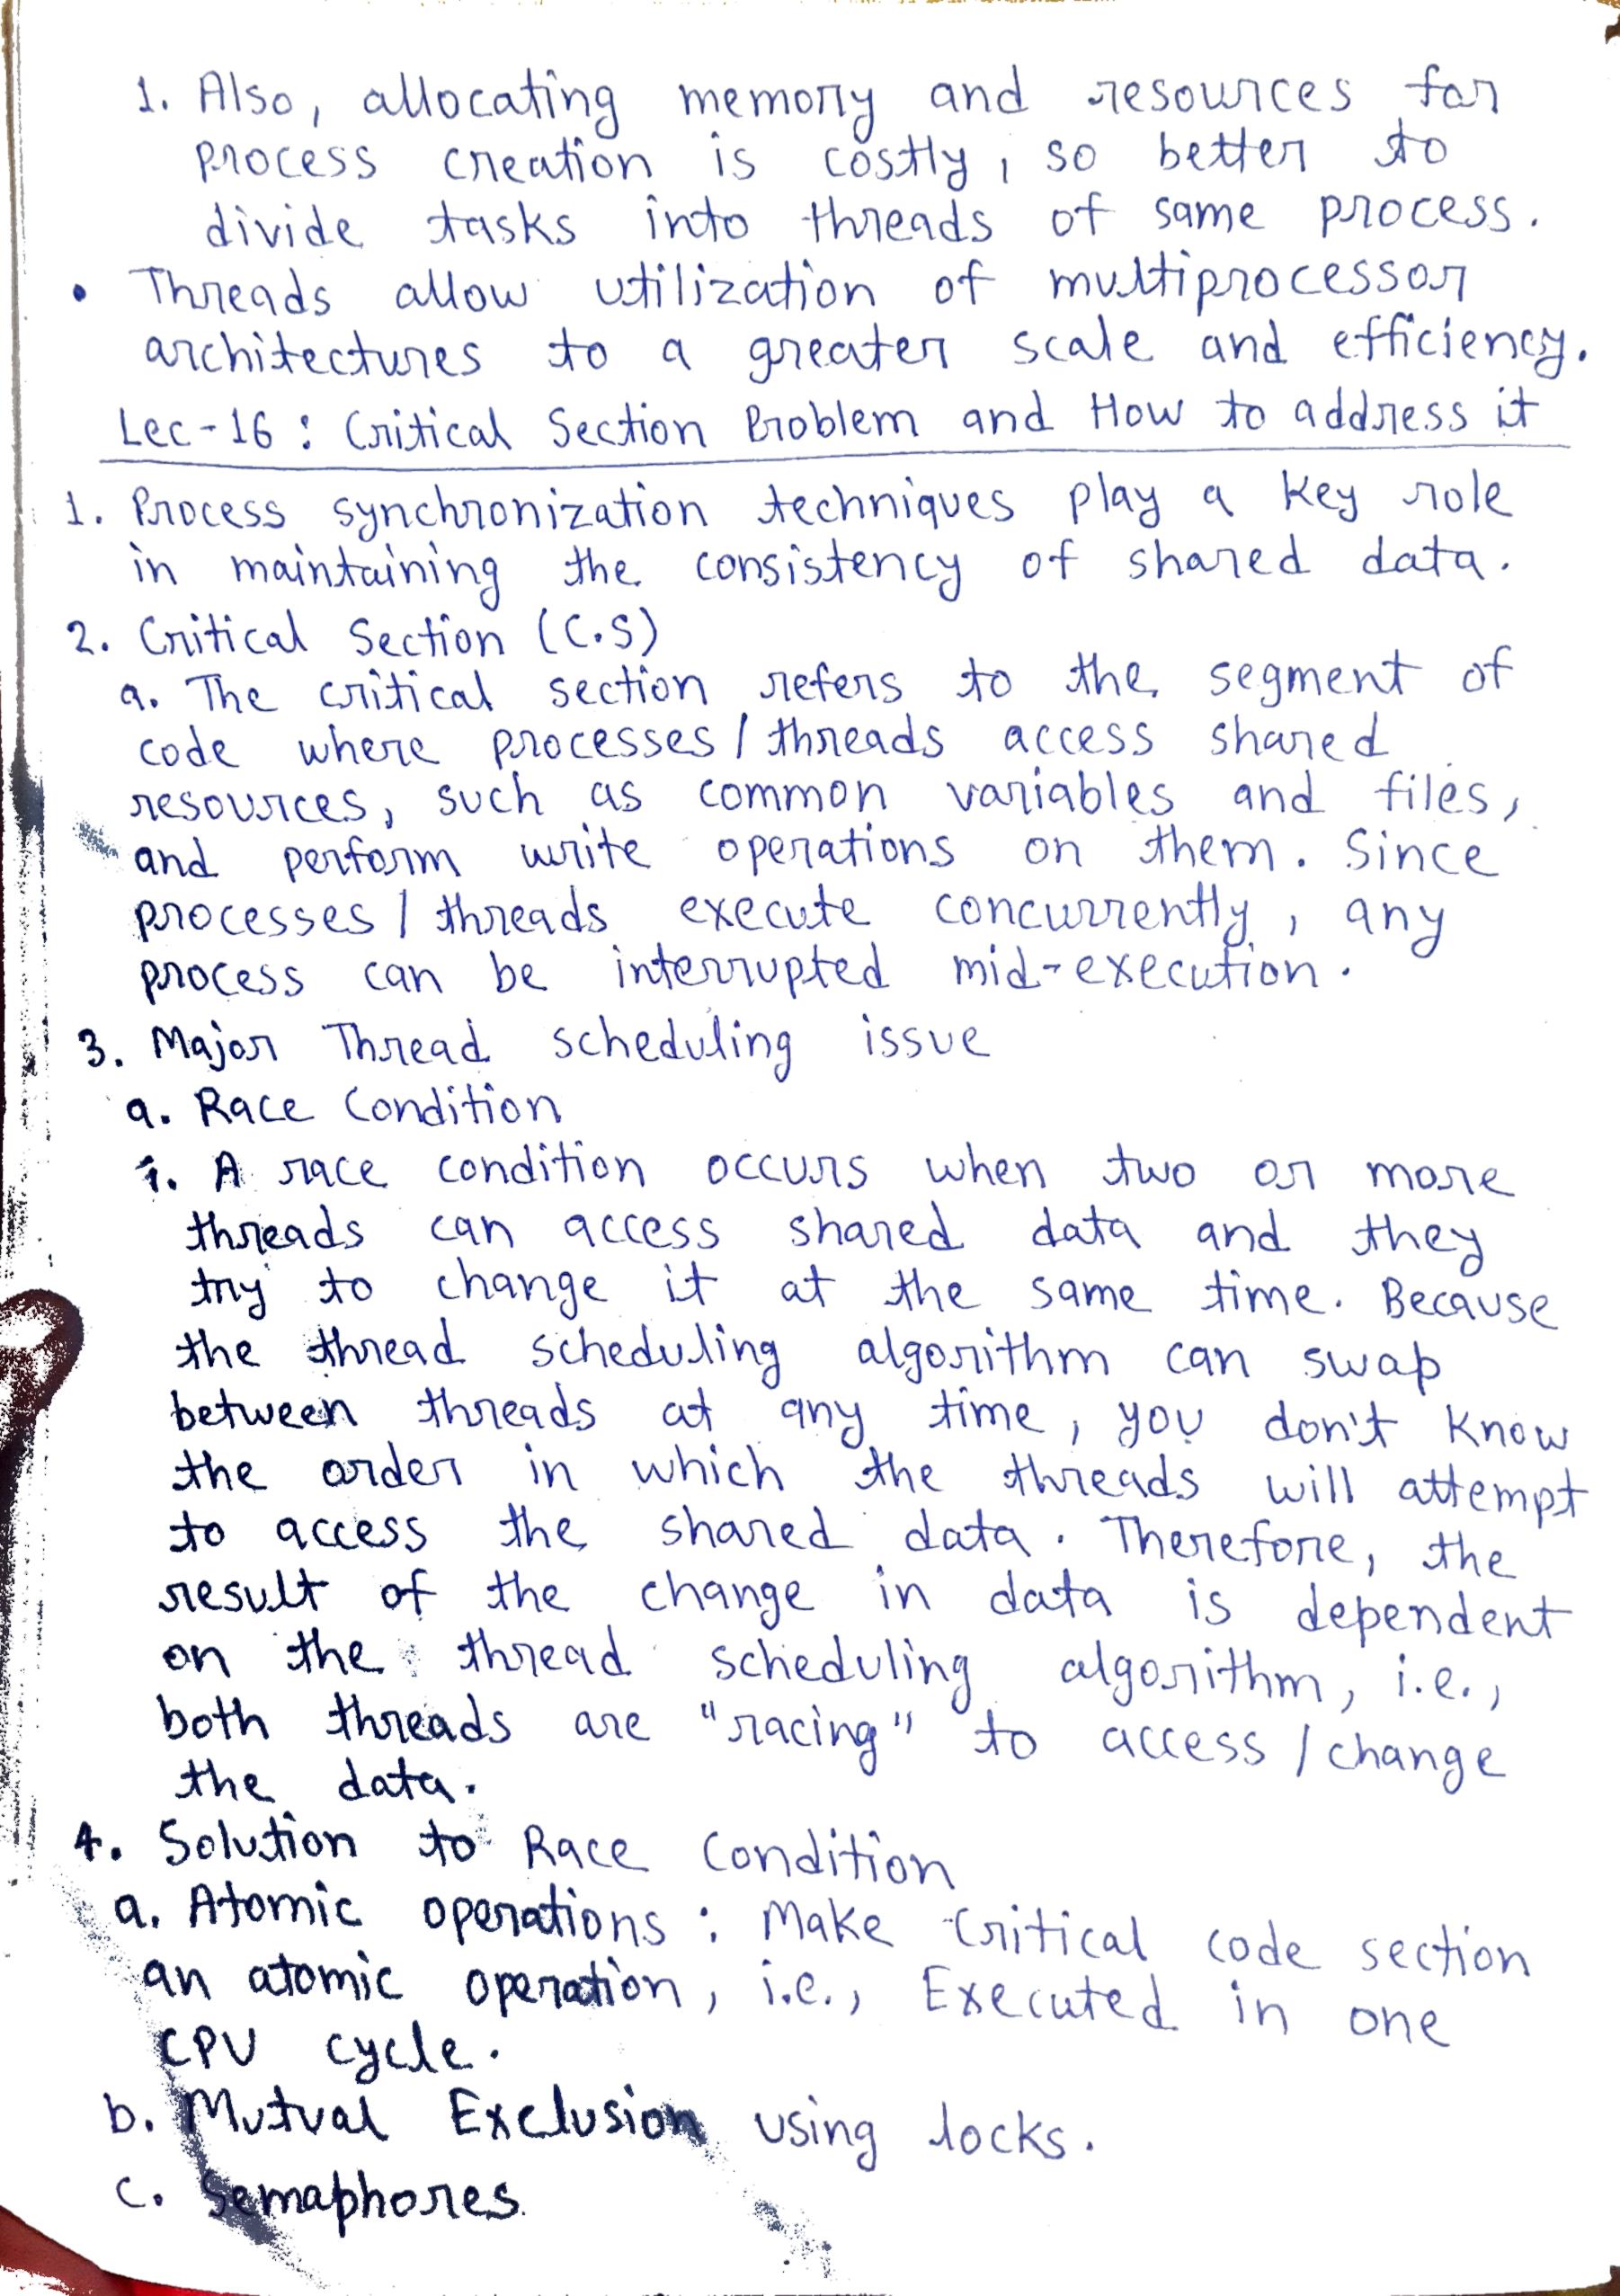 1. Also, allocating memory and resources for
process creation is costly, so better to
divide tasks into threads of same process.
• Threads allow utilization of multiprocessor
architectures to a greater scale and efficiency.
Lec-16 : Critical Section Problem and How to address it
1. Process synchronization techniques play a key role
in maintaining the consistency of shared data.
2. Critical Section (C.S)
a. The critical section refers to the segment of
code where processes / threads access shared
resources, such as common variables and files,
and perform write operations on them. Since
processes / threads execute concurrently, any
process can be interrupted mid-execution.
3. Major Thread scheduling issue
a. Race Condition
1. A race condition occurs when two or more
threads can access shared data and they
try to change it at the same time. Because
the thread scheduling algorithm can swap
between threads at any time, you don't know
the order in which the threads will attempt
to access the shared data. Therefore, the
result of the change in data is dependent
on the thread scheduling algorithm, i.e.,
both threads are "racing" to access / change
the data.
4. Solution to Race Condition
a. Atomic operations : Make Critical code section
an atomic operation, i.e., Executed in one
CPU cycle.
b. Mutual Exclusion using locks.
c. Semaphores